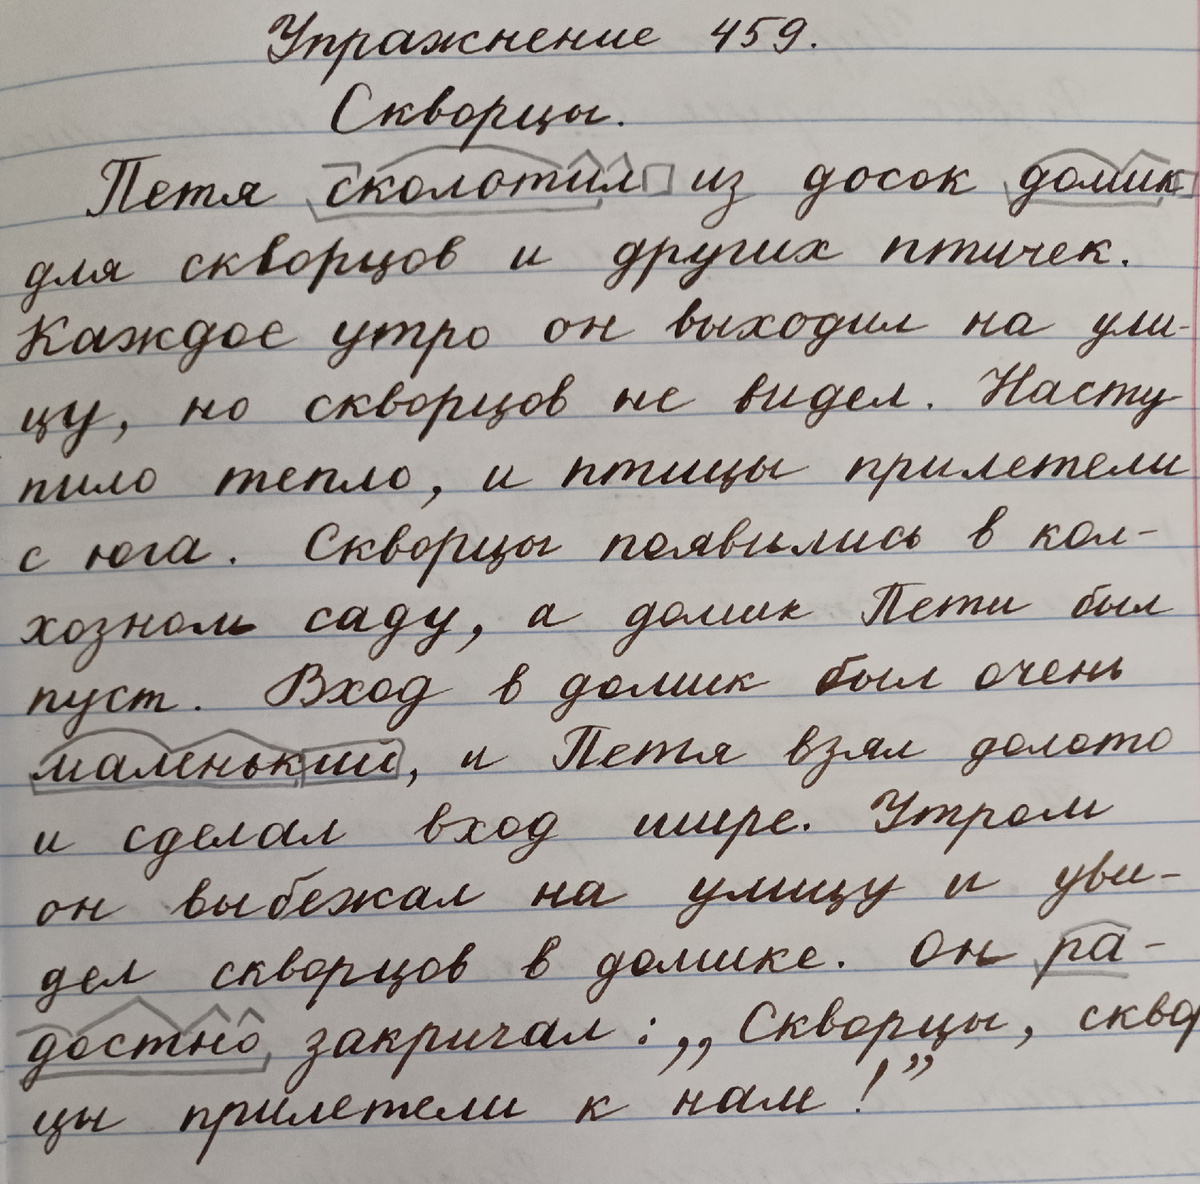 Упражнение 459.
Скворцы.
Петя сколотил из досок домик
для скворцов и других птичек.
Каждое утро он выходил на ули-
цу, но скворцов не видел. Насту
пило тепло, и птицы прилетели
с юга. Скворцы появились в кол-
хозном саду, а домик Пети был
пуст. Вход в домик был очень
маленький, и Петя взял долото
и сделал вход шире. Утром
он выбежал на улицу и уви-
дел скворцов в домике. Он ра-
достно закричал: „Скворцы, сквор
цы прилетели к нам!”